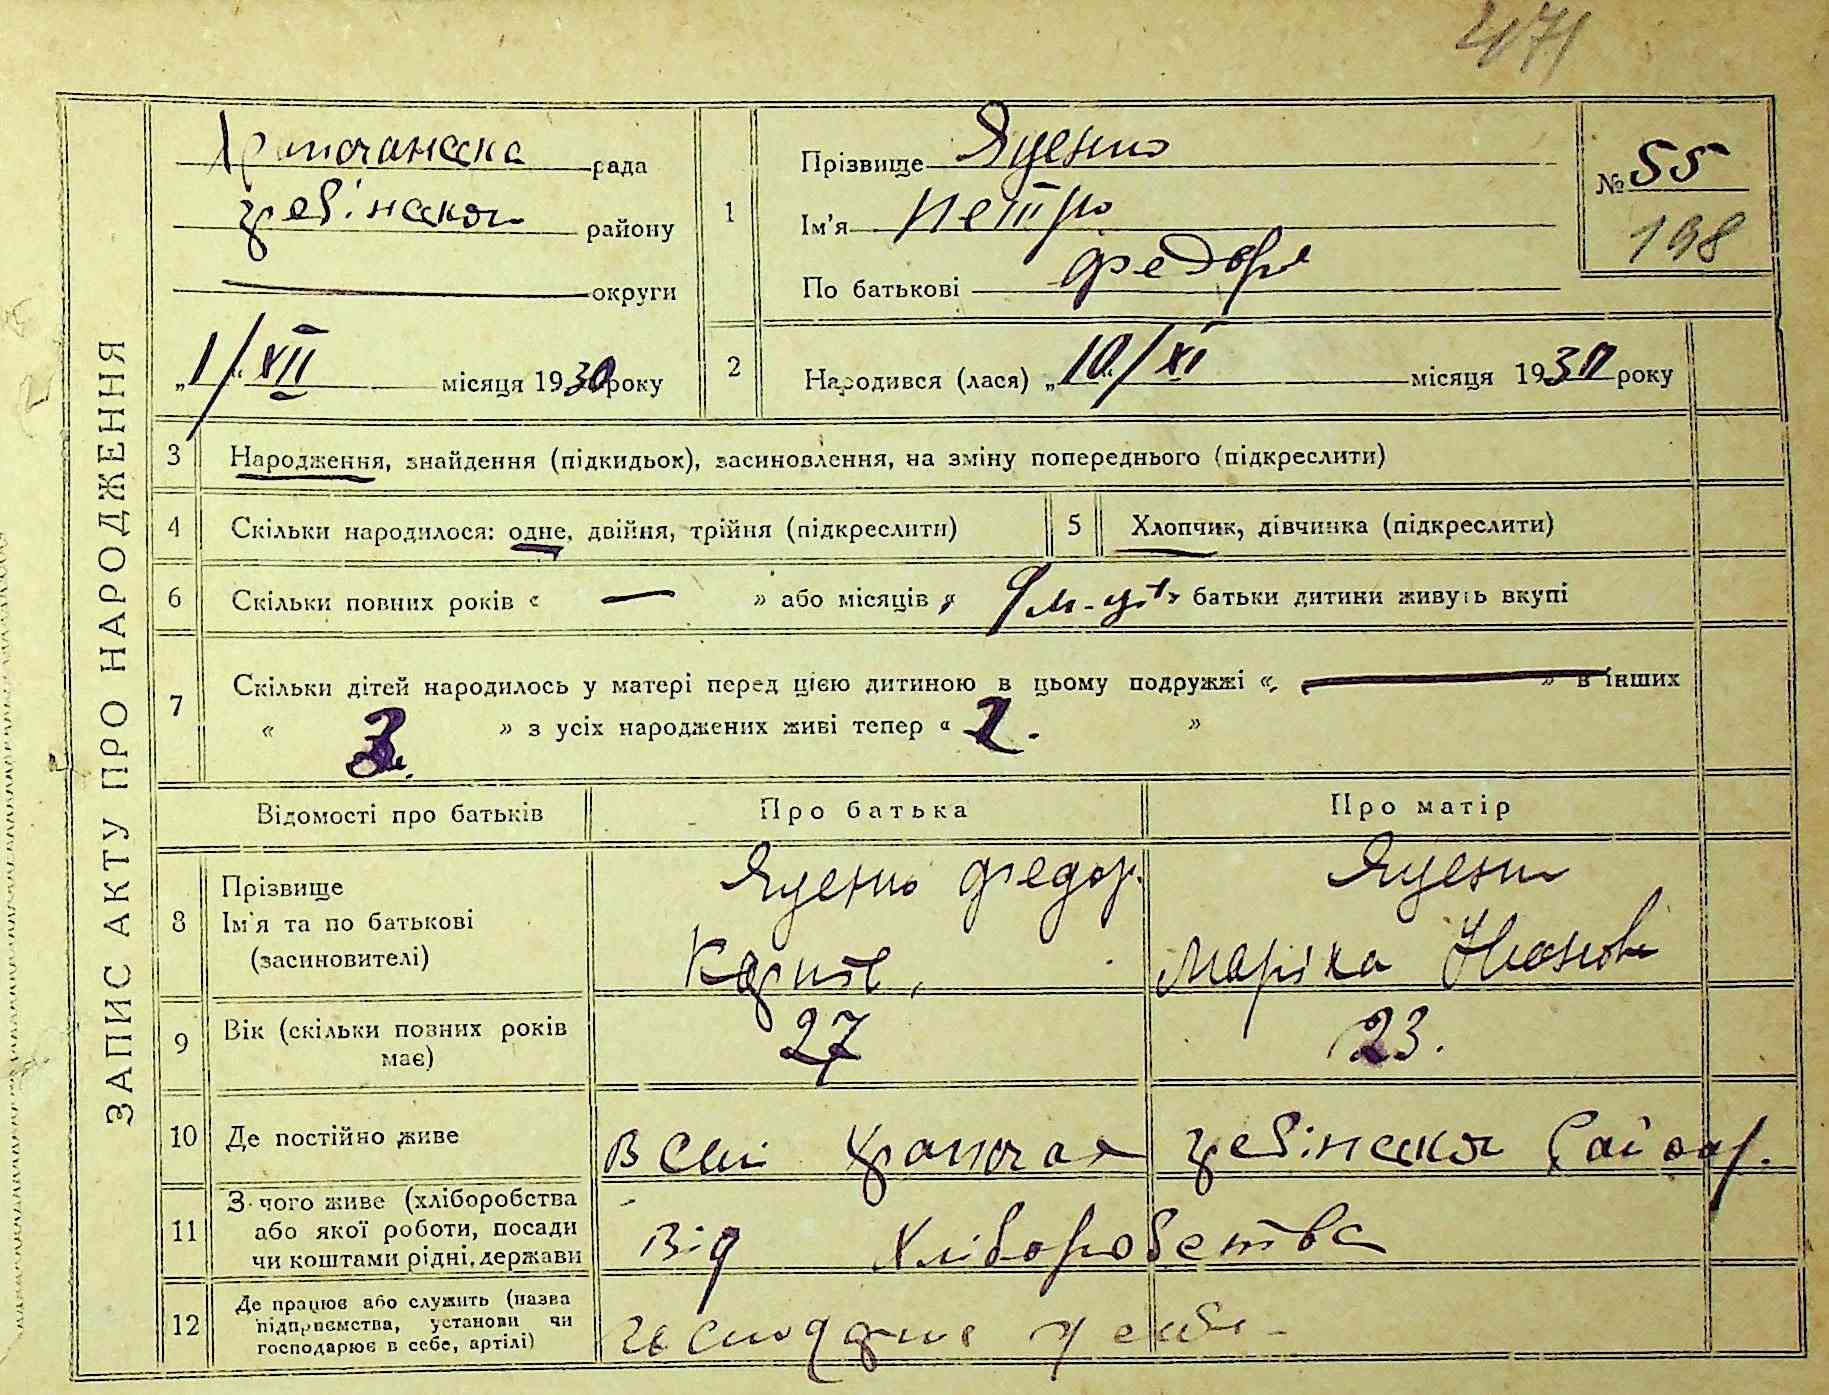 471
ЗАПИС АКТУ ПРО НАРОДЖЕННЯ
рада
району
округи
„1/“ XII місяця 1930 року
1
Прізвище Яценко
Ім'я Петро
По батькові Федор
№ 55
198
2
Народився (лася) „10/“ XI місяця 1930 року
3 Народження, знайдення (підкидьок), засиновлення, на зміну попереднього (підкреслити)
4 Скільки народилося: одне, двійня, трійня (підкреслити)
5 Хлопчик, дівчинка (підкреслити)
6 Скільки повних років « — » або місяців « » батьки дитини живуть вкупі
7 Скільки дітей народилось у матері перед цією дитиною в цьому подружжі « — » в інших
« » з усіх народжених живі тепер « »
Відомості про батьків Про батька Про матір
8 Прізвище Яценко Федор. Яценко
Ім'я та по батькові
(засиновителі) Маріка
9 Вік (скільки повних років 27 23.
має)
10 Де постійно живе В селі район
11 З чого живе (хліборобства
або якої роботи, посади Від Хліборобства
чи коштами рідні, держави
12 Де працює або служить (назва
підприємства, установи чи
господарює в себе, артілі)